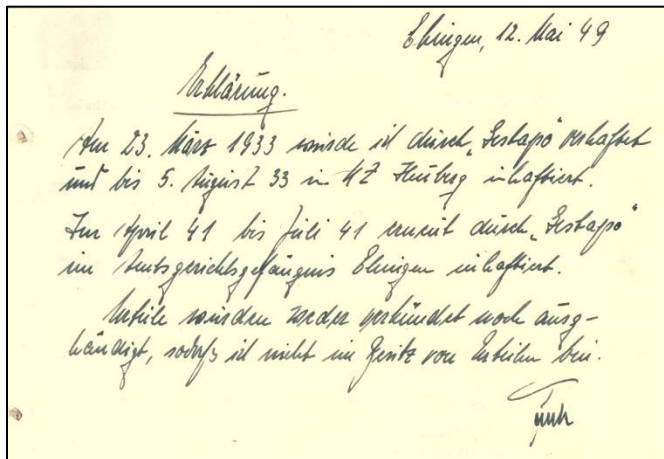 Ebingen, 12. Mai 49
Erklärung.
Am 23. März 1933 wurde ich durch „Gestapo" verhaftet
und bis 5. August 33 in KZ Heuberg inhaftiert.
Im April 41 bis Juli 41 erneut durch „Gestapo"
im Amtsgerichtsgefängnis Ebingen inhaftiert.
Urteile wurden weder verkündet noch ausge-
händigt, sodaß ich nicht im Besitz von Urteilen bin.